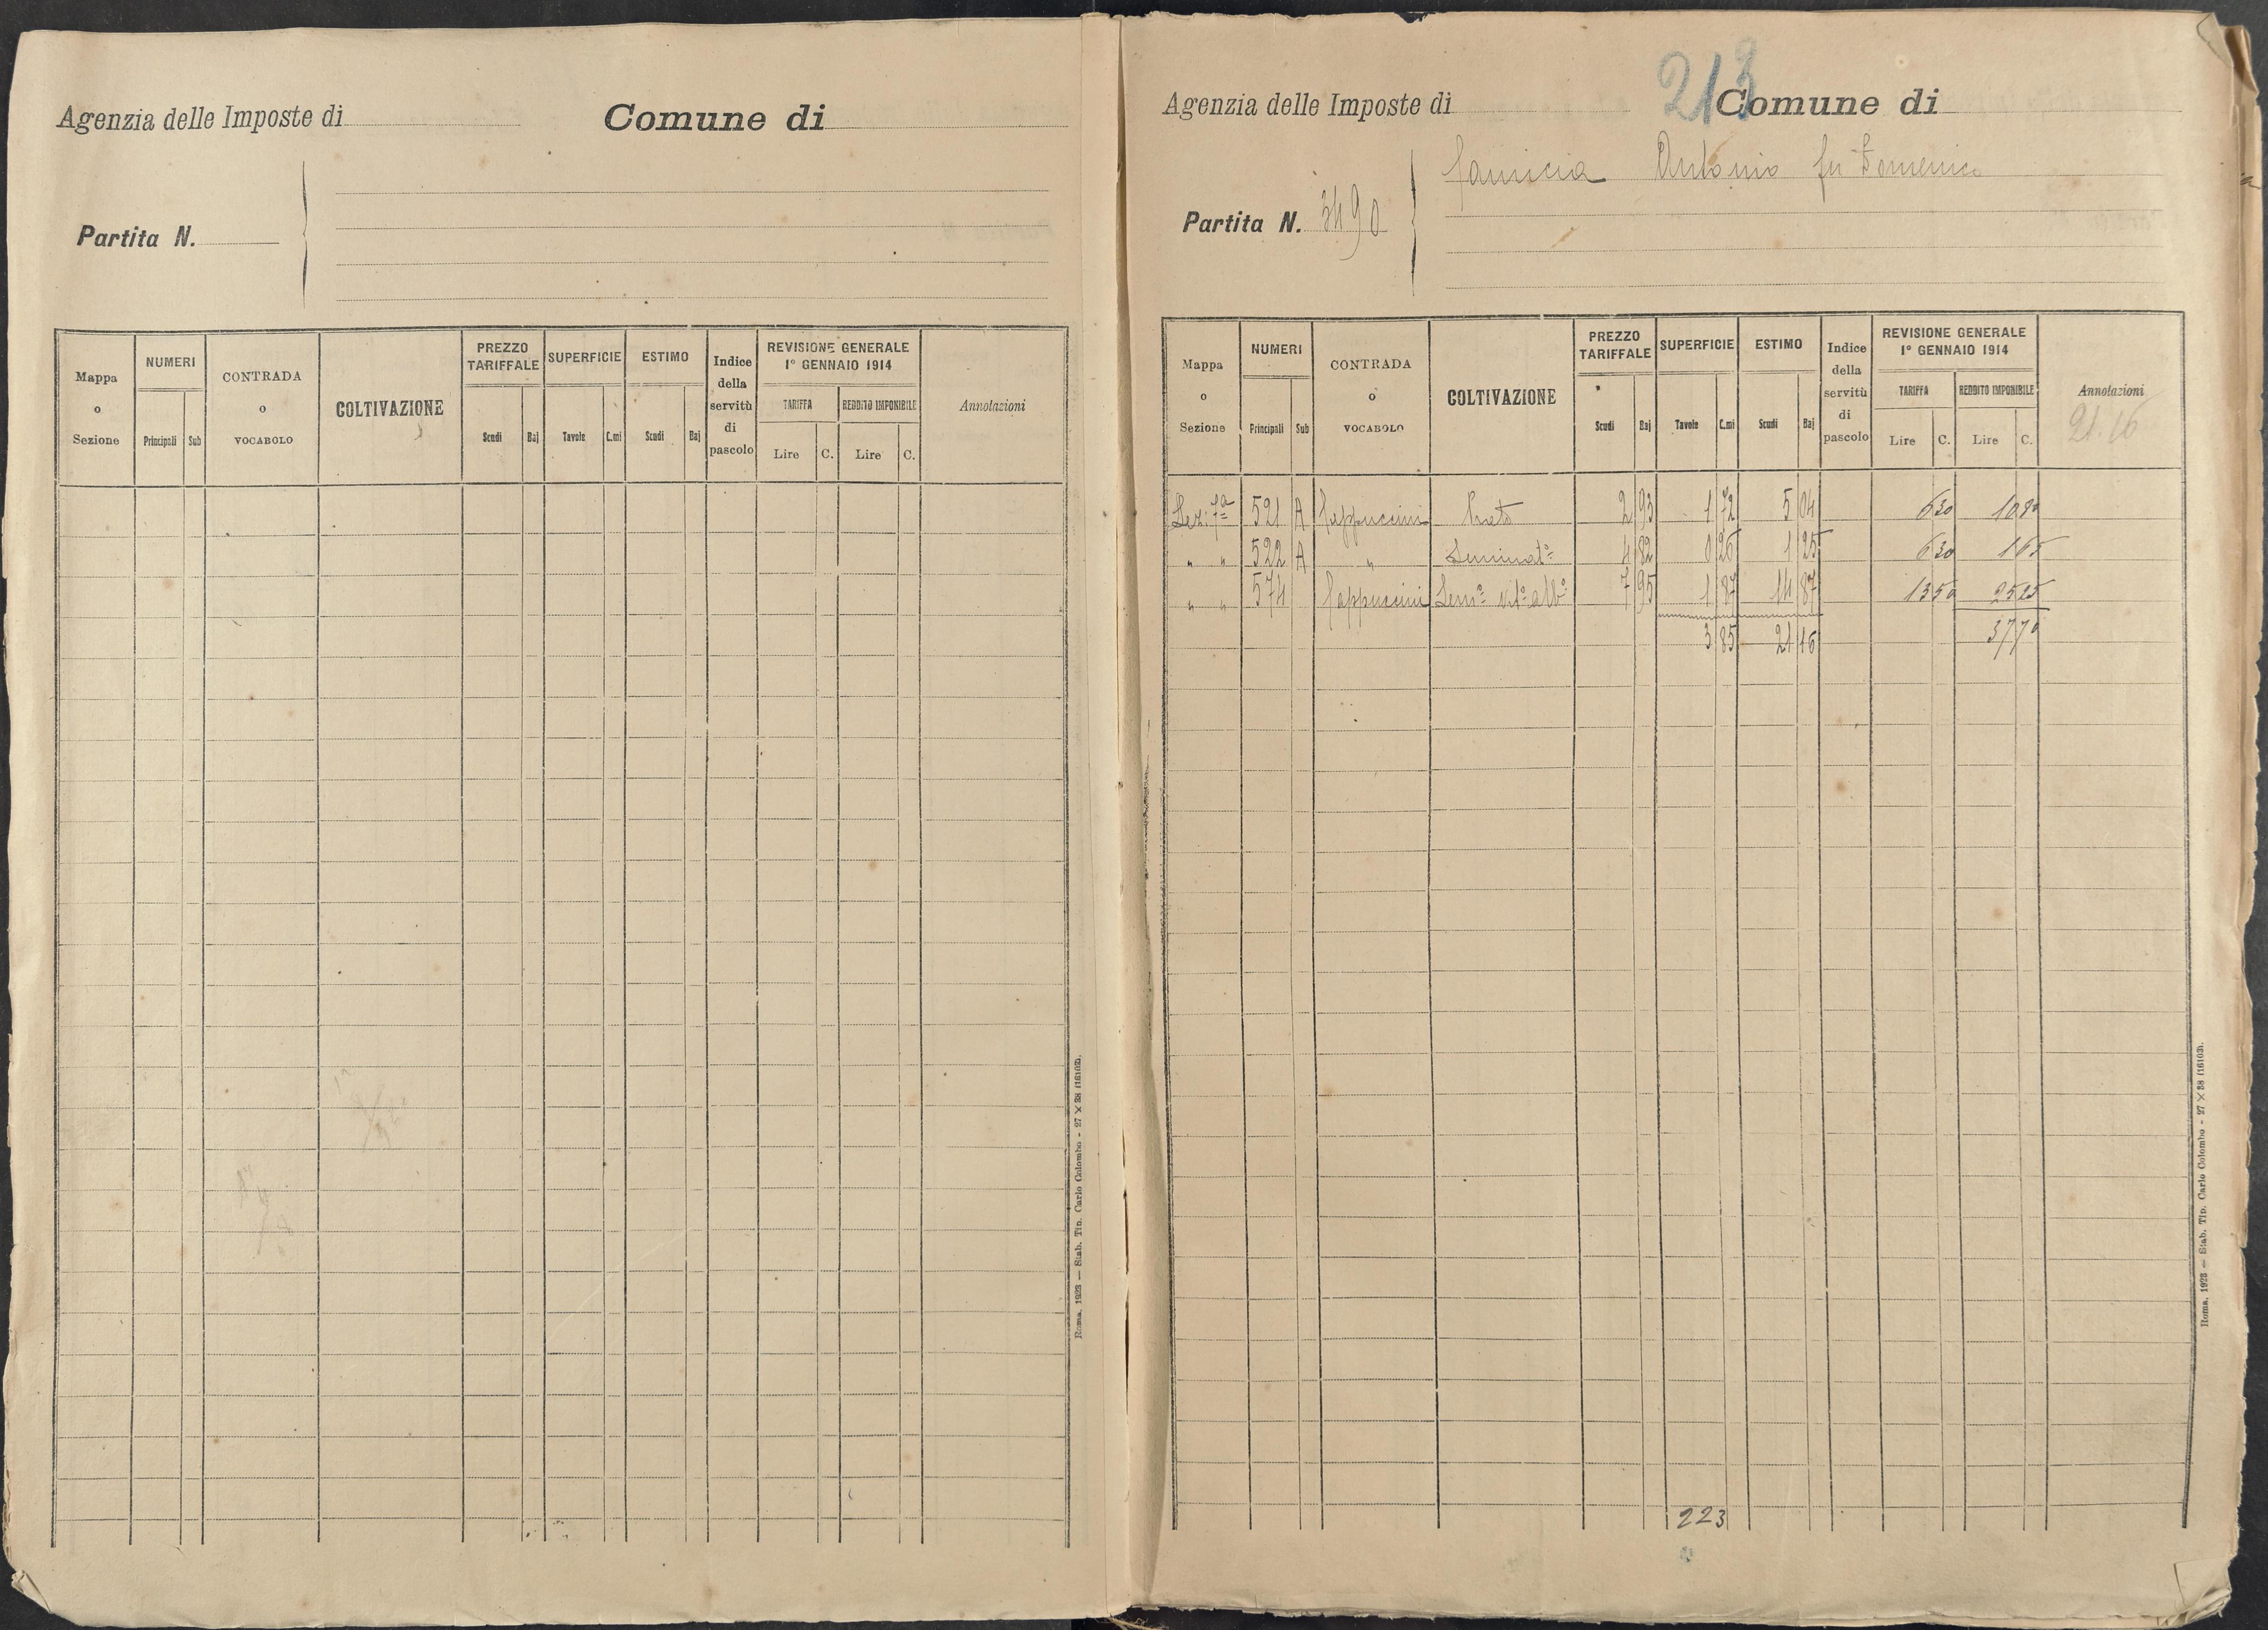 Agenzia delle Imposte di
Comune di
Partita N.
Mappa o Sezione
NUMERI
Principali Sub
CONTRADA o VOCABOLO
COLTIVAZIONE
PREZZO TARIFFALE
Scudi Baj
SUPERFICIE
Tavole C.mi
ESTIMO
Scudi Baj
Indice della servitù di pascolo
REVISIONE GENERALE
1° GENNAIO 1914
TARIFFA
Lire C.
REDDITO IMPONIBILE
Lire C.
Annotazioni
Roma, 1923 — Stab. Tip. Carlo Colombo - 27 × 38 (16102).
213
Agenzia delle Imposte di
Comune di
Antonio fu Domenico
Partita N. 3490
Mappa o Sezione
NUMERI
Principali Sub
CONTRADA o VOCABOLO
COLTIVAZIONE
PREZZO TARIFFALE
Scudi Baj
SUPERFICIE
Tavole C.mi
ESTIMO
Scudi Baj
Indice della servitù di pascolo
REVISIONE GENERALE
1° GENNAIO 1914
TARIFFA
Lire C.
REDDITO IMPONIBILE
Lire C.
Annotazioni
21.16
Sez: 1a 521 A Cappuccini Prato 2 93 1 72 5 04 6 30 10 80
" " 522 A " Seminato 4 82 0 26 1 25 6 30 1 65
" " 574 Cappuccini Semo vito albo 7 95 1 87 14 87 13 50 25 25
3 85 21 16 37 70
223
Roma, 1923 — Stab. Tip. Carlo Colombo - 27 × 38 (16102).